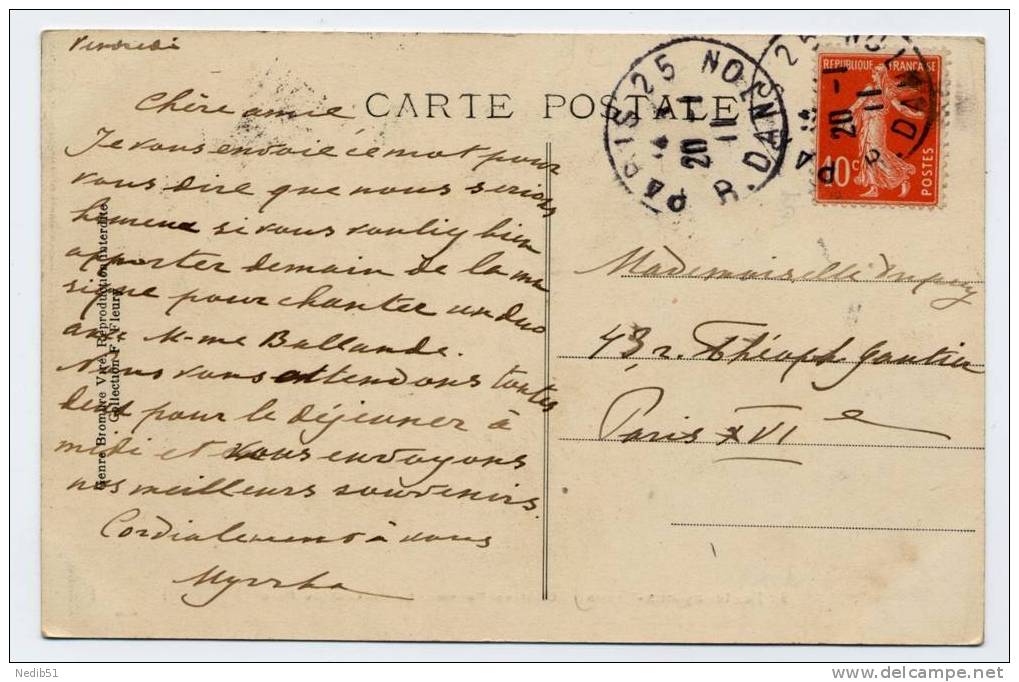 Vendredi
CARTE POSTALE
Chère amie
Je vous envoie ce mot pour
vous dire que nous serions
heureux si vous vouliez bien
apporter demain de la mu
sique pour chanter un duo
avec M-me Ballande.
Nous vous attendons toutes
deux pour le déjeuner à
midi et vous envoyons
nos meilleurs souvenirs.
Cordialement à vous
Myrrha
Genre Bromure Viré, Reproduction interdite
Collection F. Fleury
PARIS 25
R. DANS
20 - 1
11
REPUBLIQUE FRANÇAISE
10c
POSTES
Mademoiselle
43, r. Théoph Gautier
Paris XVIe
Nedib51
www.delcampe.net